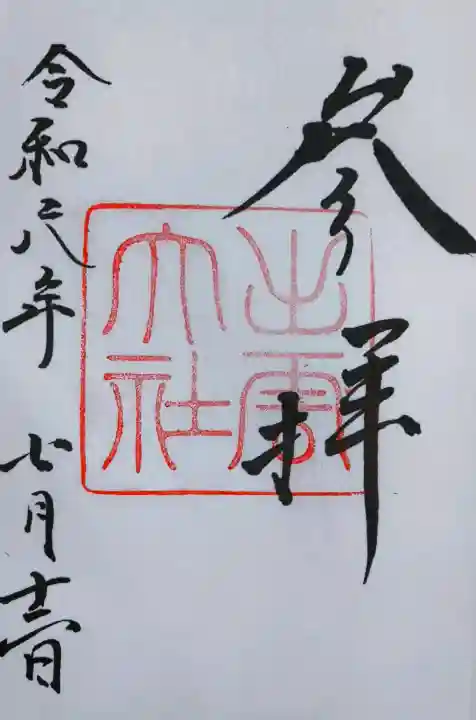 参拝
出雲
大社
令和元年 七月十三日